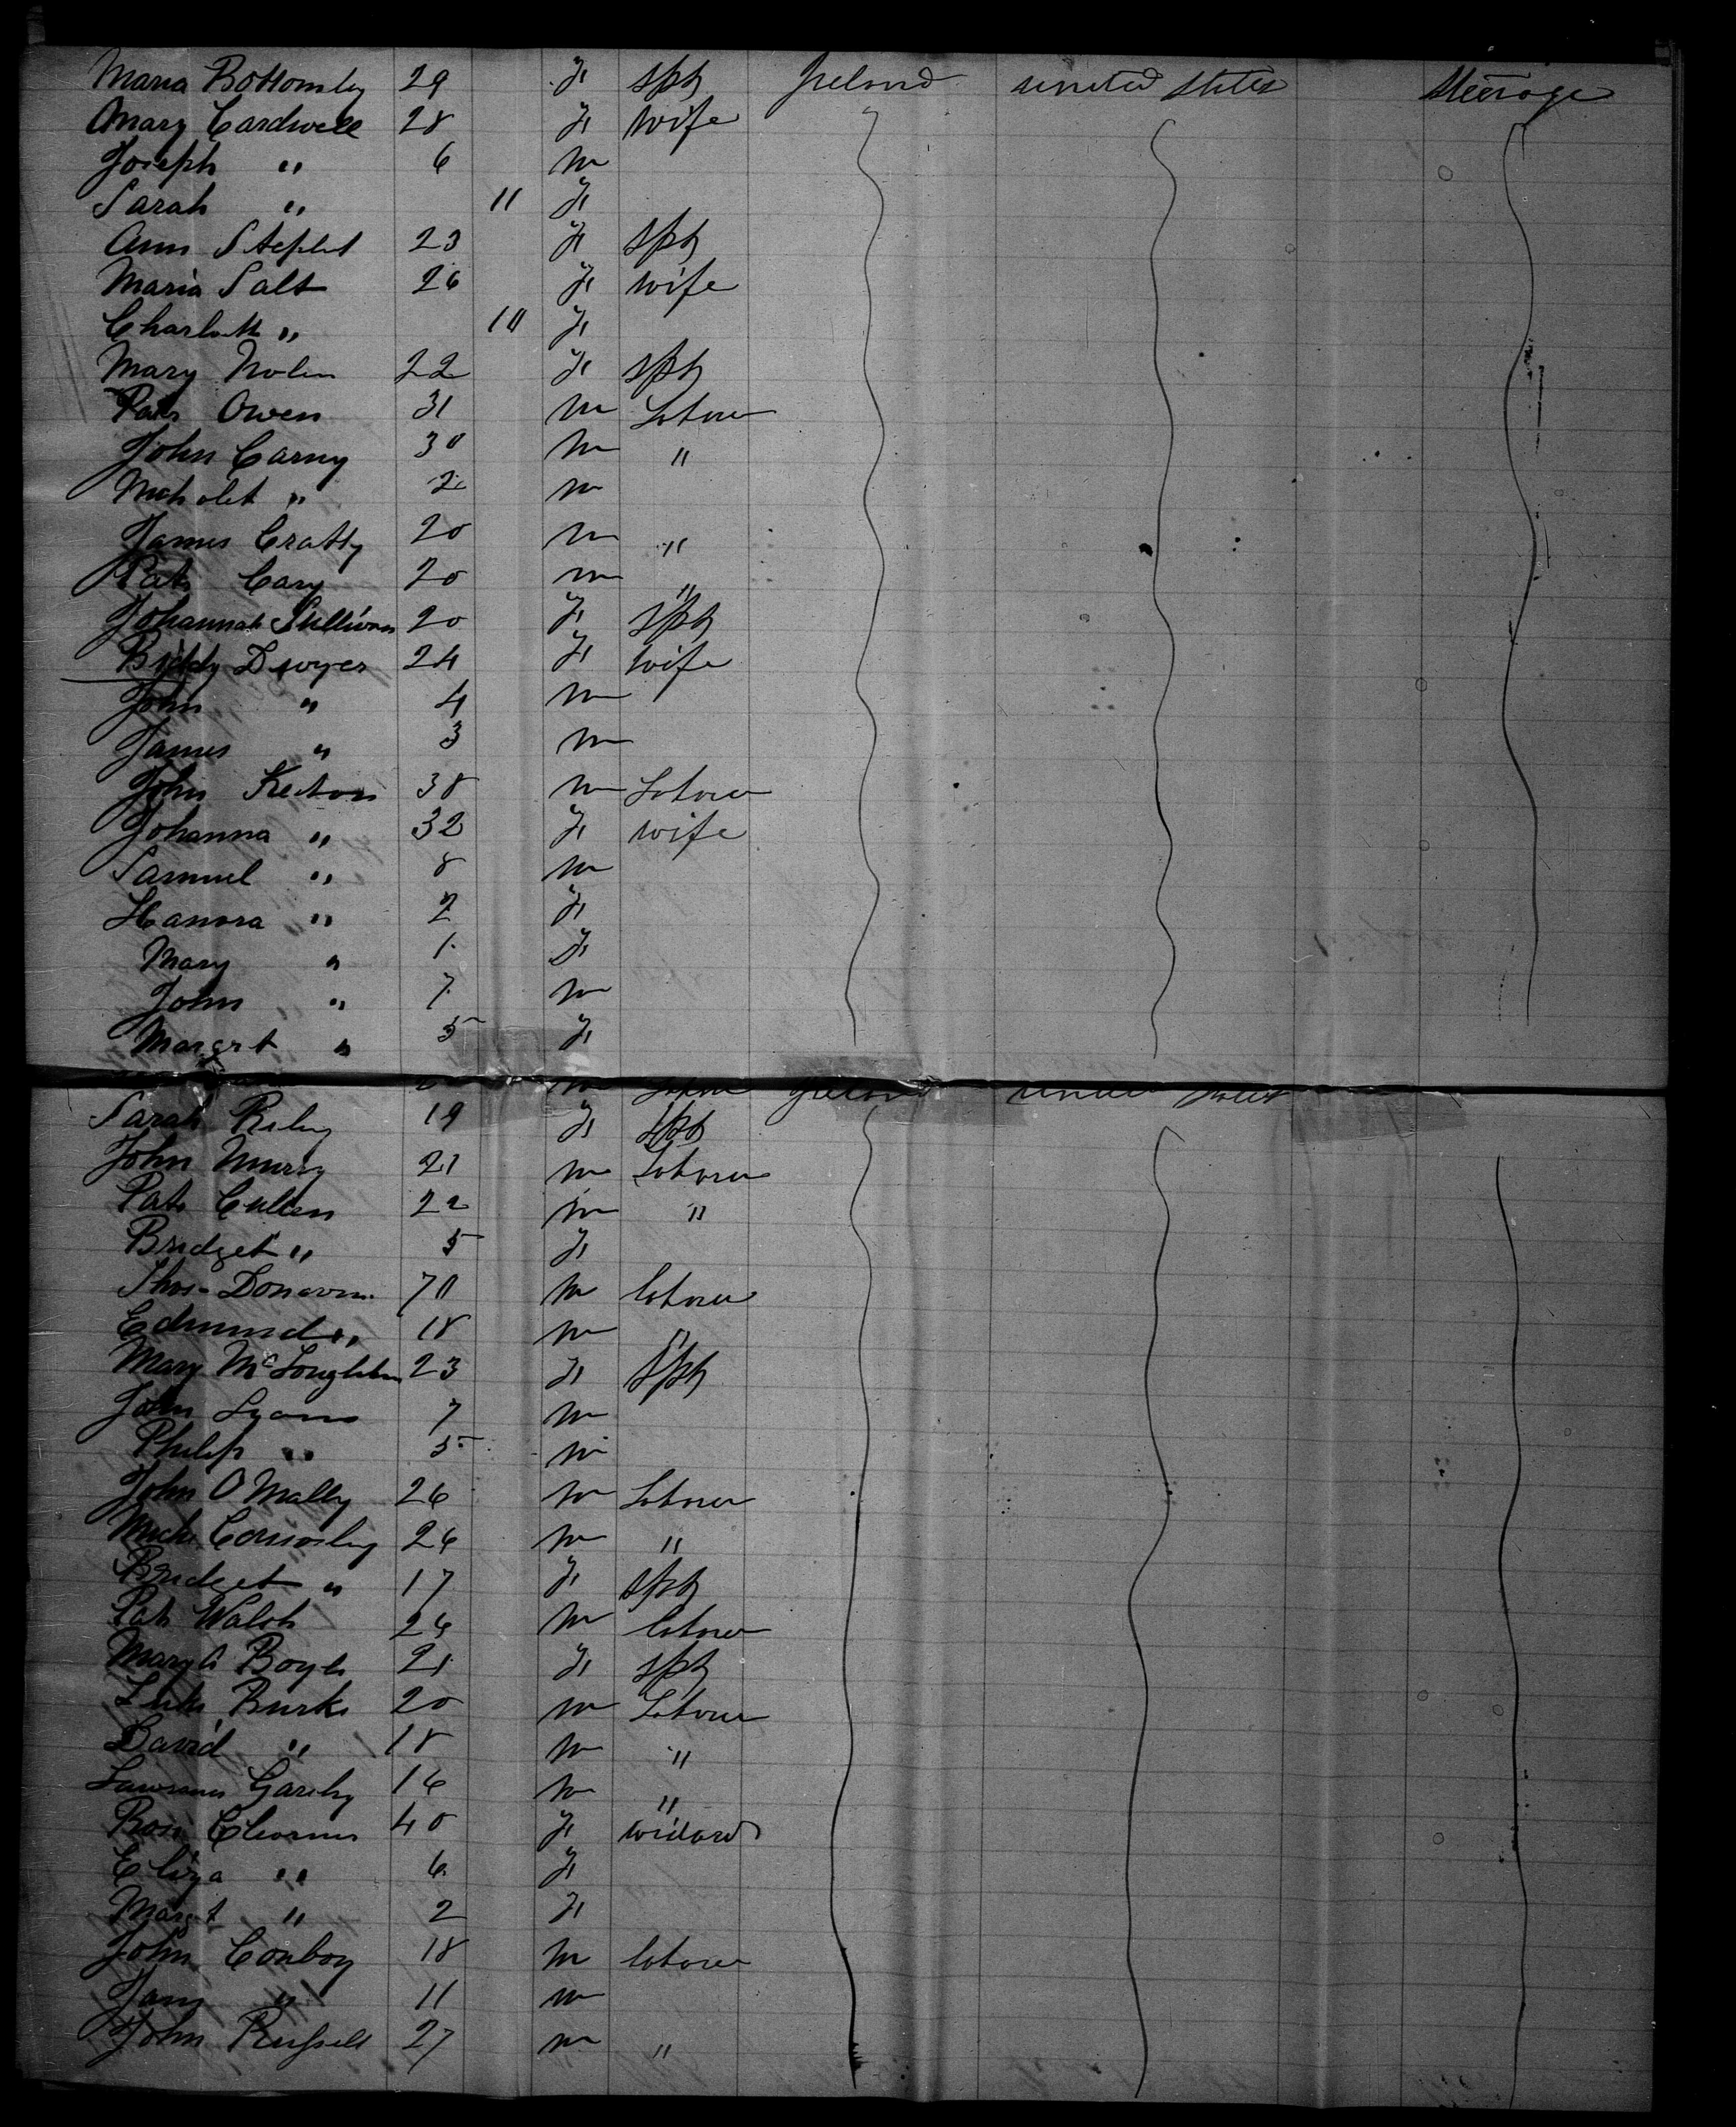 Maria Bottomley 29 F Spt Ireland United States Steerage
Mary Cardwell 28 F Wife
Joseph " 6 m
Sarah " 11 F
Ann 23 F Spt
Maria Salt 26 F Wife
Charlott " 10 F
Mary Nolin 22 F Spt
Patk Owen 31 m Labour
John Carny 30 m "
" 2 m
James Cratty 20 m "
Patk Cary 20 m "
Johannah Sullivan 20 F Spt
Biddy Dwyer 24 F Wife
John " 4 m
James " 3 m
John 38 m Labour
Johanna " 32 F Wife
Samuel " 8 m
Hanora " 2 F
Mary " 1 F
John " 7 m
Margrt " 5 F
m Labour Ireland United States
Sarah Riley 19 F Spt
John Murry 21 m Labour
Patk Cullen 22 m "
Bridget " 5 F
Thos Donovan 70 m labour
Edmund " 18 m "
Mary McLoughlin 23 F Spt
John Lyons 7 m
Philip " 5 m
John O Mally 26 m Labour
Mich 26 m "
Bridget " 17 F Spt
Patk Walsh 26 m labour
Mary A Boyle 21 F Spt
Luke Burke 20 m Labour
David " 18 m "
Lawrence 16 m "
Rose 40 F widard
Eliza " 6 F
Margt " 2 F
John Conboy 18 m labour
" 11 m
John Russell 27 m "